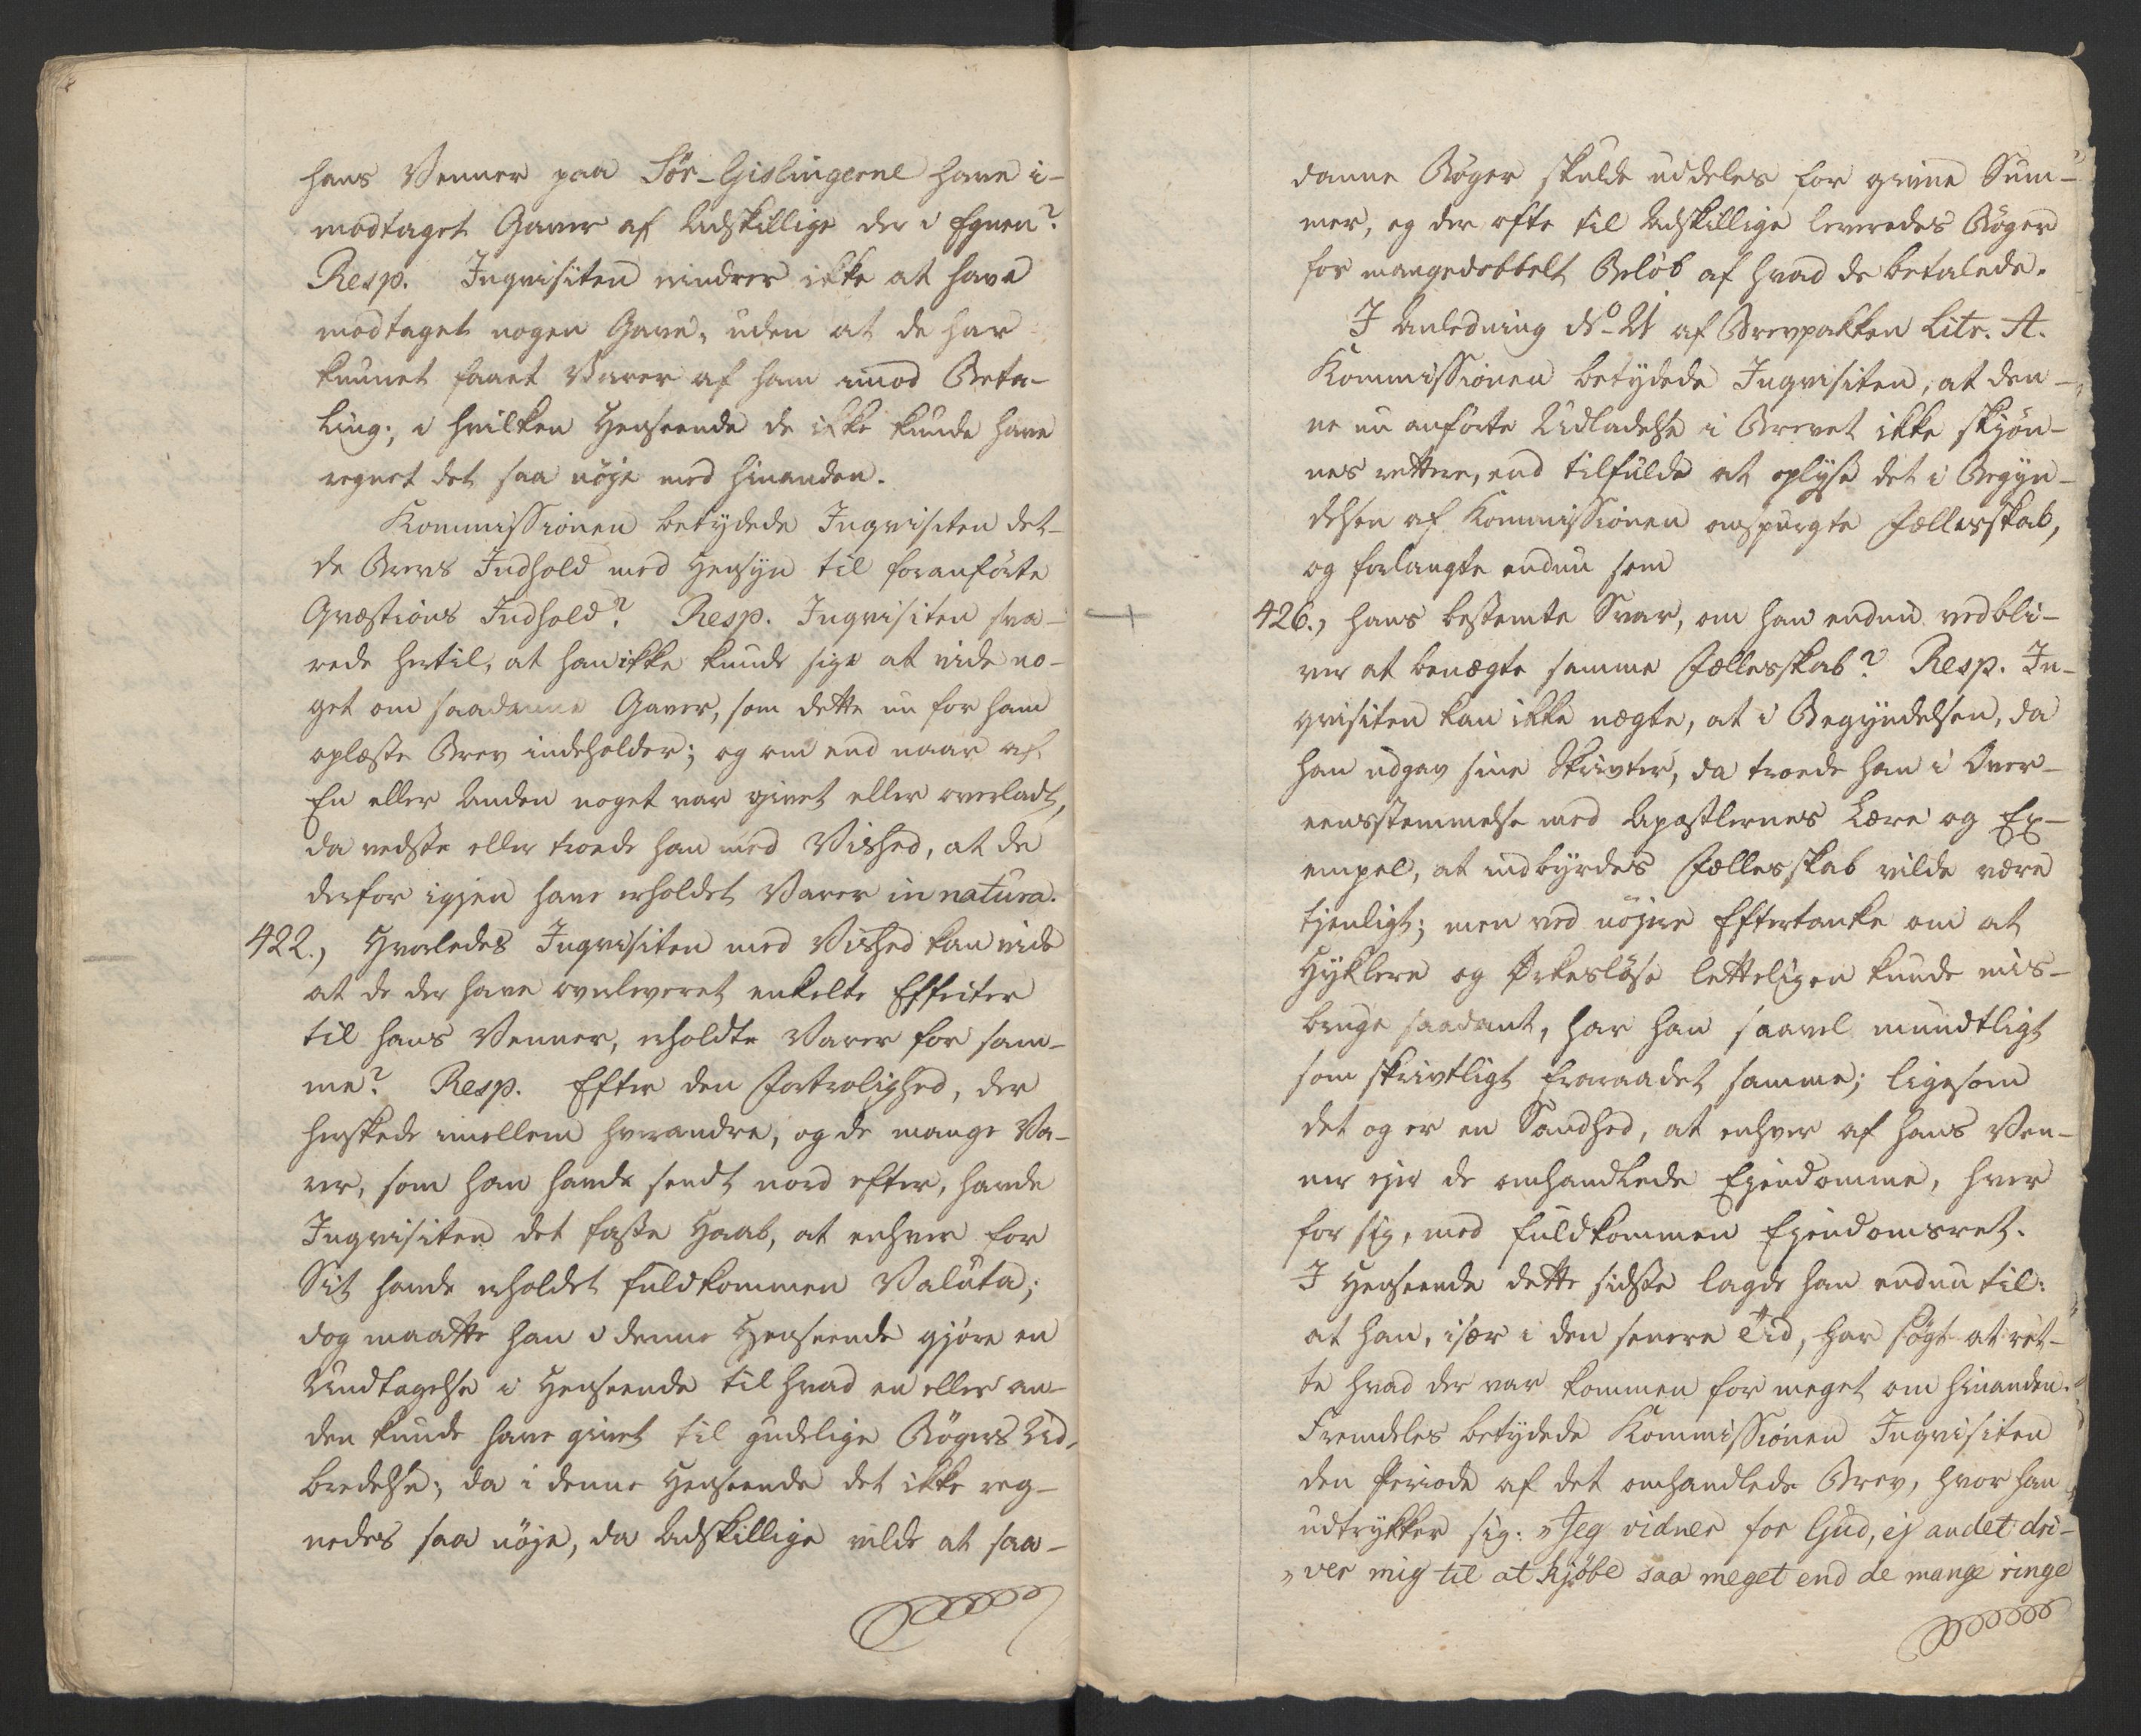 hans Venner paa Sør-Gislingerne have i-
modtaget Gaver af Adskillige der i Egnen?
Resp. Inqvisiten mindrer ikke at have
modtaget nogen Gave, uden at de har
kunnet faaet Varer af ham imod Beta-
ling; i hvilken Henseende de ikke kunde have
regnet det saa nöje med hinanden.
Kommissionen betydede Inqvisiten det-
te Brevs Indhold med Hensyn til foranförte
Qvæstions Indhold? Resp. Inqvisiten sva-
rede hertil, at han ikke kunde sige at vide no-
get om saadanne Gaver, som dette nu for ham
oplæste Brev indeholder; og om end naar af
En eller Anden noget var givet eller overladt,
da vedste eller troede han med Vished, at de
derfor igjen have erholdet Varer in natura.
422., Hvorledes Inqvisiten med Vished kan vide
at de der have overleveret enkelte Effecter
til hans Venner, erholdte Varer for sam-
me? Resp. Efter den Fortrolighed, der
herskede imellem hverandre, og de mange Va-
rer, som han havde sendt nord efter, havde
Inqvisiten det faste Haab, at enhver for
Sit havde erholdet fuldkommen Valuta;
dog maatte han i denne Henseende gjøre en
Undtagelse i Henseende til hvad en eller an-
den kunde have givet til gudelige Bögers Ud-
bredelse; da i denne Henseende det ikke reg-
nedes saa nöje, da Adskillige vilde at saa-
danne Böger skulde uddeles for givne Sum-
mer, og der ofte til Adskillige leveredes Böger
for mangedobbelt Belöb af hvad de betalede.
I Anledning No 21 af Brevpakken Litr. A.
Kommissionen betydede Inqvisiten, at den-
ne nu anförte Udladelse i Brevet ikke skjøn-
nes rettere, end tilfulde at oplyse det i Begyn-
delsen af Kommissionen omspurgte Fællesskab,
og forlangte endnu som
426., hans bestemte Svar, om han endnu vedbli-
ver at benægte samme Fællesskab? Resp. In-
qvisiten kan ikke nægte, at i Begyndelsen, da
han udgav sine Skrivter, da troede han i Over-
eensstemmelse med Apostlernes Lære og Ex-
empel, at indbyrdes Fællesskab vilde være
tjenligt; men ved nöjere Eftertanke om at
Hyklere og Ørkeslöse letteligen kunde mis-
bruge saadant, har han saavel mundtligt
som skrivtligt fraraadet samme; ligesom
det og er en Sandhed, at enhver af hans Ven-
ner ejer de omhandlede Ejendomme, hver
for sig, med fuldkommen Ejendomsret.
I Henseende dette sidste lagde han endnu til:
at han, især i den senere Tid, har søgt at ret-
te hvad der var kommen for meget om hinanden.
Fremdeles betydede Kommissionen Inqvisiten
den Periode af det omhandlede Brev, hvor han
udtrykker sig: „Jeg vidner for Gud, ej andet dri-
„ver mig til at kjøbe saa meget end de mange ringe